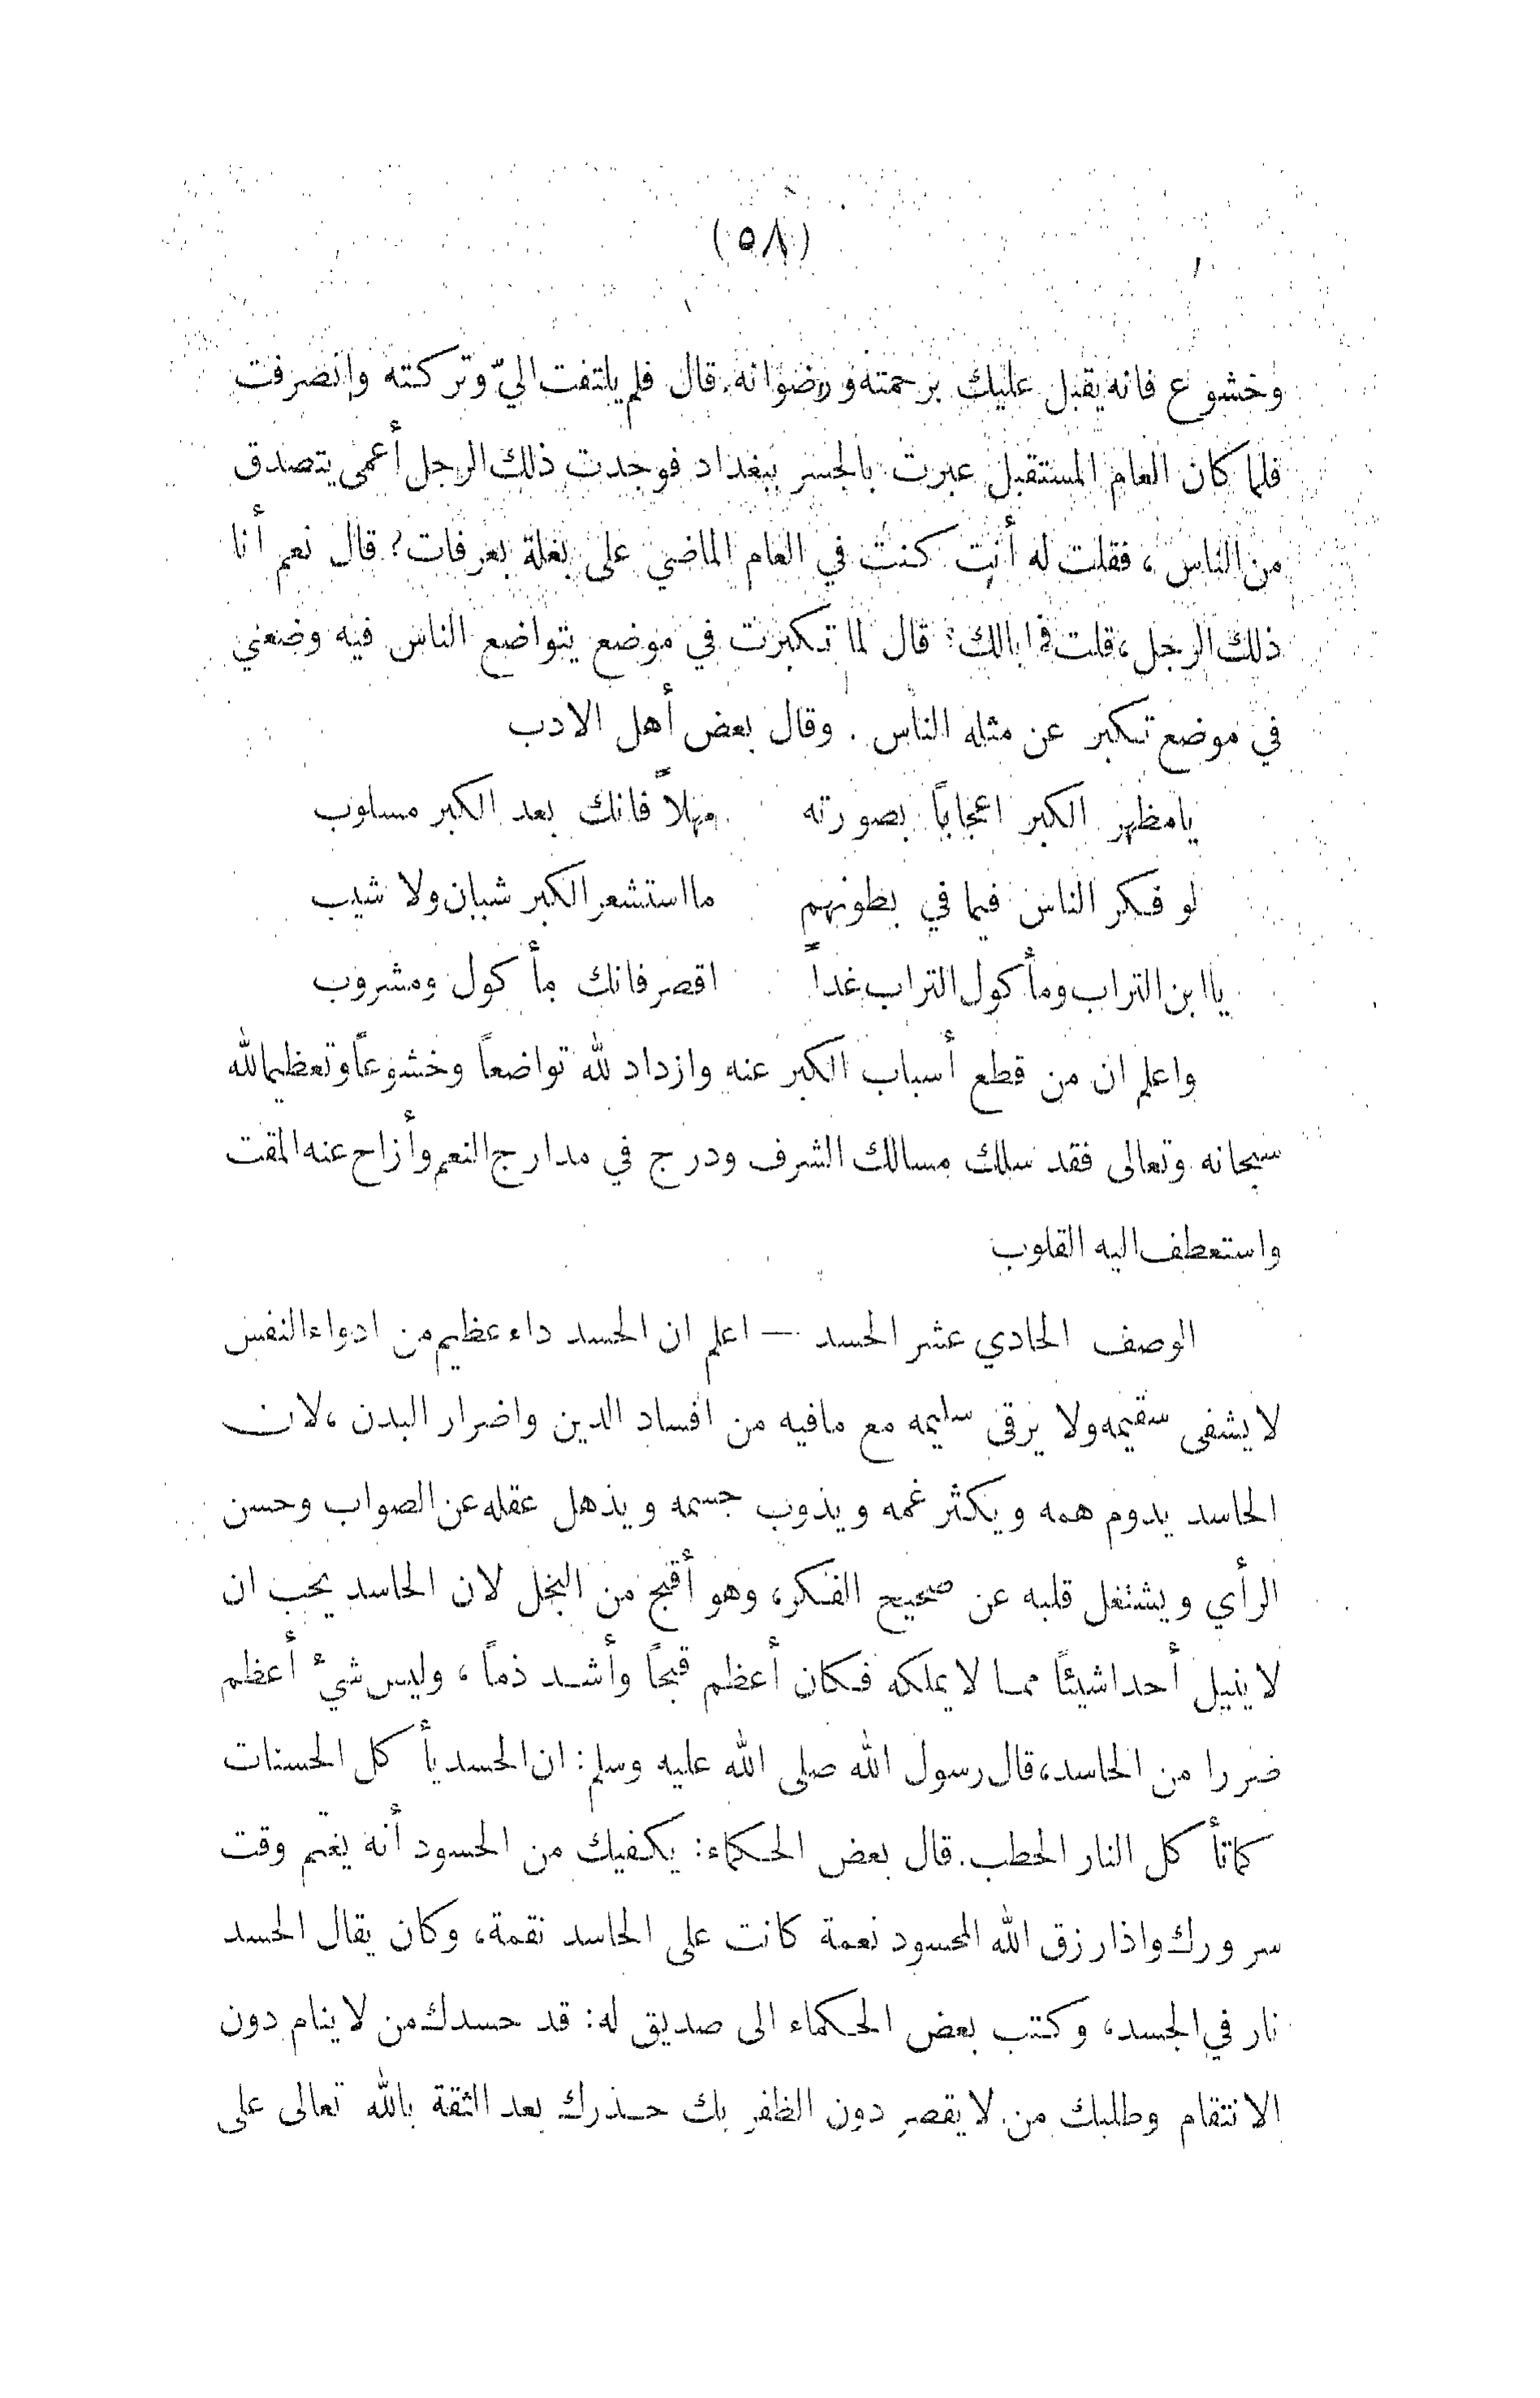 (٥٨)
وخشوع فانه يقبل عليك برحمته ورضوانه. قال فلم يلتفت اليّ وتركته وانصرفت
فلما كان العام المستقبل عبرت بالجسر ببغداد فوجدت ذلك الرجل أعمى يتصدق
من الناس، فقلت له أنت كنت في العام الماضي على بغلة بعرفات؟ قال نعم أنا
ذلك الرجل، قلت فما بالك؟ قال لما تكبرت في موضع يتواضع الناس فيه وضعني
في موضع تكبر عن مثله الناس. وقال بعض أهل الادب
يامظهر الكبر اعجاباً بصورته    مهلاً فانك بعد الكبر مسلوب
لو فكر الناس فيما في بطونهم    ما استشعر الكبر شبان ولا شيب
يا ابن التراب ومأكول التراب غداً    اقصر فانك مأكول ومشروب
واعلم ان من قطع أسباب الكبر عنه وازداد لله تواضعاً وخشوعاً وتعظيما لله
سبحانه وتعالى فقد سلك مسالك الشرف ودرج في مدارج النعم وأزاح عنه المقت
واستعطف اليه القلوب
الوصف الحادي عشر الحسد — اعلم ان الحسد داء عظيم من ادواء النفس
لا يشفى سقيمه ولا يرقى سليمه مع مافيه من افساد الدين واضرار البدن، لان
الحاسد يدوم همه ويكثر غمه ويذوب جسمه ويذهل عقله عن الصواب وحسن
الرأي ويشتغل قلبه عن صحيح الفكر، وهو أقبح من البخل لان الحاسد يحب ان
لا ينيل أحدا شيئاً مما لا يملكه فكان أعظم قبحاً وأشد ذماً، وليس شيء أعظم
ضررا من الحاسد، قال رسول الله صلى الله عليه وسلم: ان الحسد يأكل الحسنات
كما تأكل النار الحطب. قال بعض الحكماء: يكفيك من الحسود أنه يغتم وقت
سرورك واذا رزق الله المحسود نعمة كانت على الحاسد نقمة، وكان يقال الحسد
نار في الجسد، وكتب بعض الحكماء الى صديق له: قد حسدك من لا ينام دون
الانتقام وطلبك من لا يقصر دون الظفر بك حذرك بعد الثقة بالله تعالى على